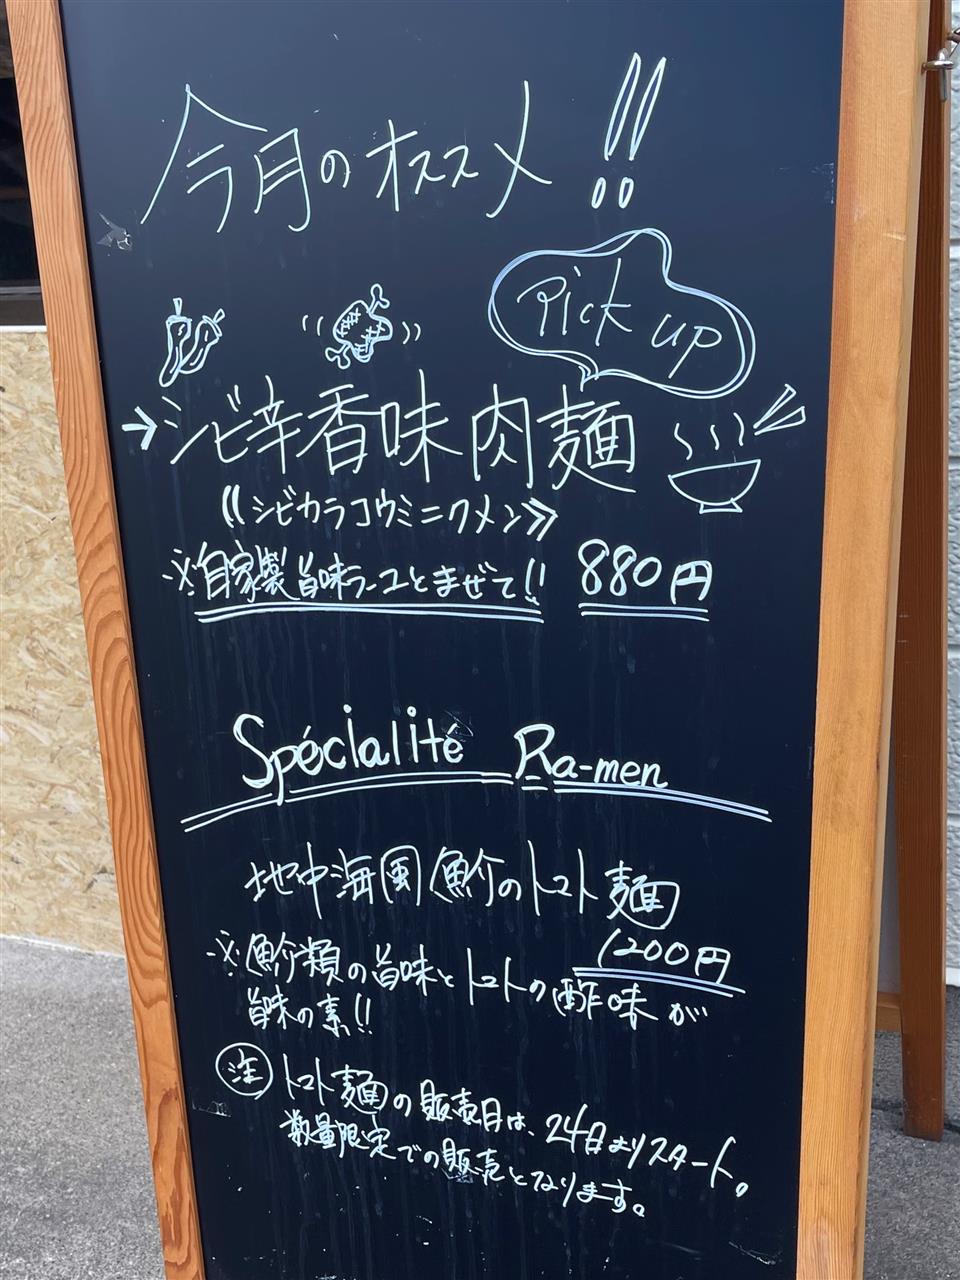 今月のオススメ!!
Pick up
→シビ辛香味肉麺
《シビカラコウミニクメン》
※自家製旨味ラー油とまぜて!! 880円
Spécialité Ra-men
地中海風魚介のトマト麺
1200円
※魚介類の旨味とトマトの酸味が
旨味の素!!
注 トマト麺の販売日は、24日よりスタート。
数量限定での販売となります。